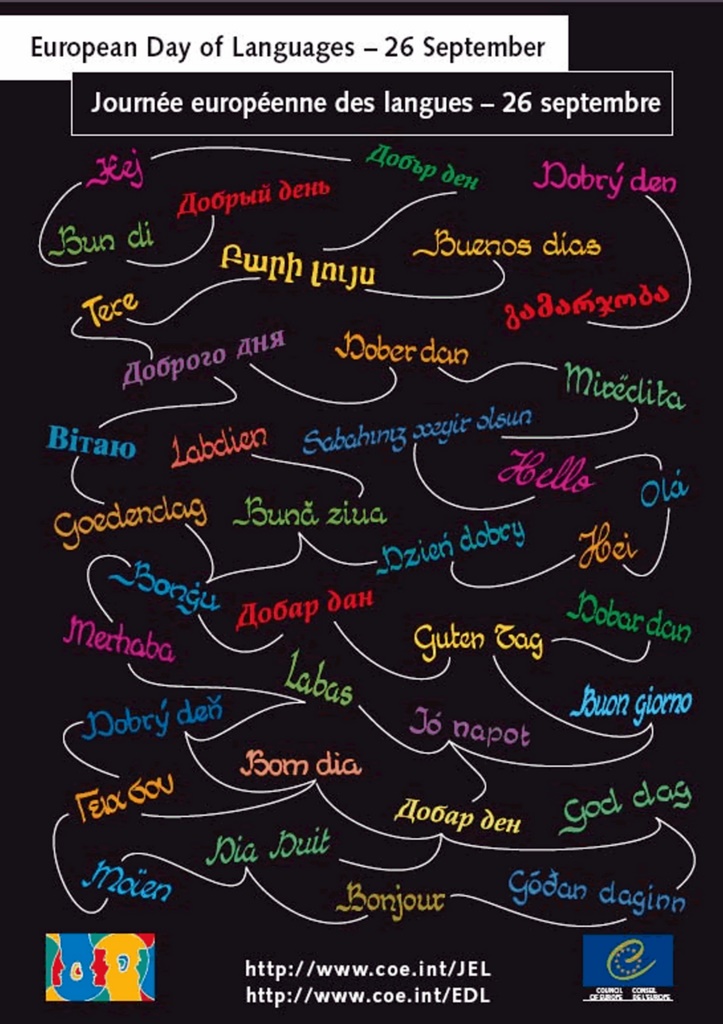 European Day of Languages – 26 September
Journée européenne des langues – 26 septembre
Hej
Добър ден
Dobrý den
Добрый день
Bun di
Buenos días
Բարի լույս
Tere
გამარჯობა
Доброго дня
Dober dan
Mirëdita
Вітаю
Labdien
Sabahınız xeyir olsun
Hello
Olá
Goedendag
Bună ziua
Dzień dobry
Hei
Bonġu
Добар дан
Dobar dan
Merhaba
Guten Tag
Labas
Buon giorno
Dobrý deň
Jó napot
Bom dia
Γεια σου
Добар ден
God dag
Dia Duit
Moïen
Bonjour
Góðan daginn
http://www.coe.int/JEL
http://www.coe.int/EDL
COUNCIL CONSEIL
OF EUROPE DE L'EUROPE